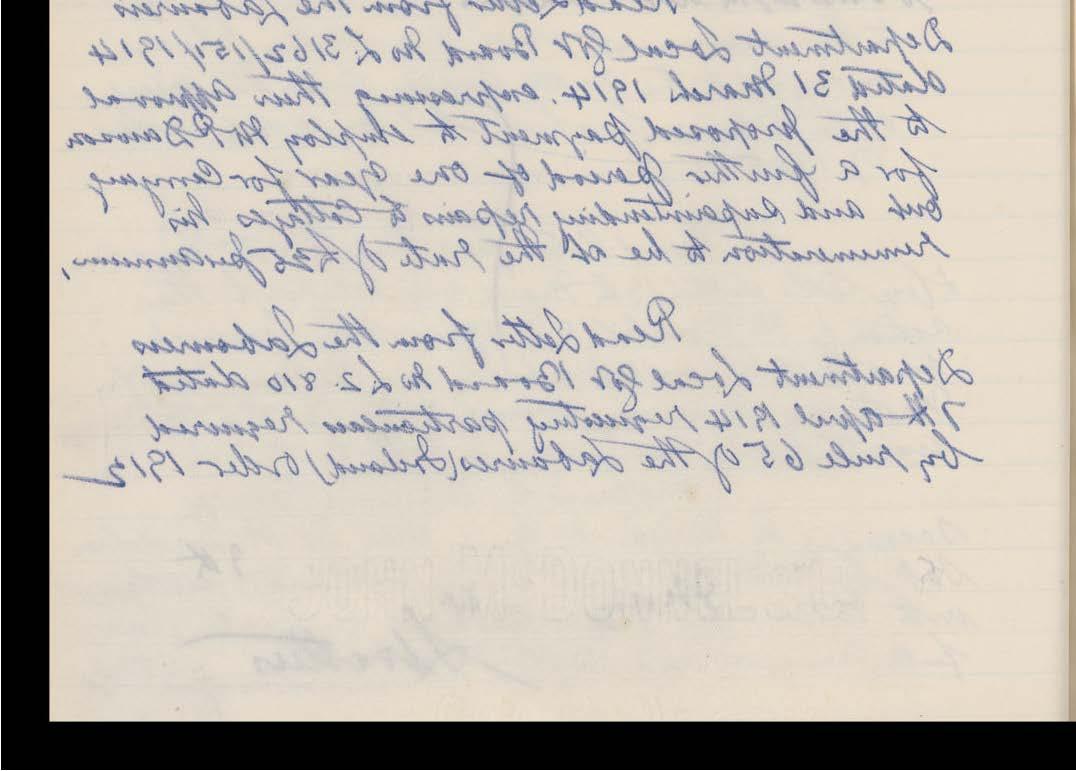 Read Letter from the Labourers
Department Local Govt Board No L. 3162/15/1914
dated 31 March 1914. expressing their approval
to the proposed payment to employ Mr Dawson
for a further period of one year for carrying
out and superintending repairs to Cottages his
remuneration to be at the rate of £25 per annum,
Read Letter from the Labourers
Department Local Govt Board No L 2. 810 dated
7th April 1914 requesting particulars required
by rule 65 of the Labourers (Ireland) Order 1912